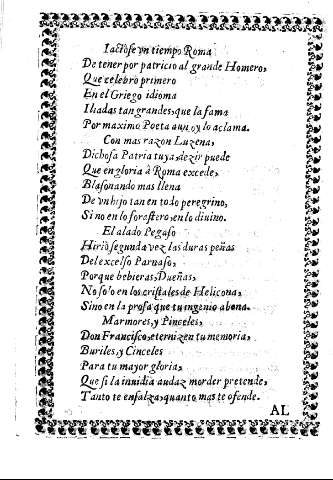 Iactòse vn tiempo Roma
De tener por patricio al grande Homero,
Que celebrò primero
En el Griego idioma
Iliadas tan grandes, que la fama
Por maximo Poeta aun oy lo aclama.
Con mas razon Luzena,
Dichosa Patria tuya, dezir puede
Que en gloria à Roma excede,
Blasonando mas llena
De vn hijo tan en todo peregrino,
Si no en lo forastero, en lo diuino.
El alado Pegaso
Hiriò segunda vez las duras peñas
Del excelso Parnaso,
Porque bebieras, Dueñas,
No solo en los cristales de Helicona,
Sino en la prosa que tu ingenio abona.
Marmores, y Pinceles,
Don Francisco, eternizen tu memoria,
Buriles, y Cinceles
Para tu mayor gloria,
Que si la inuidia audaz morder pretende,
Tanto te ensalza, quanto mas te ofende.
AL